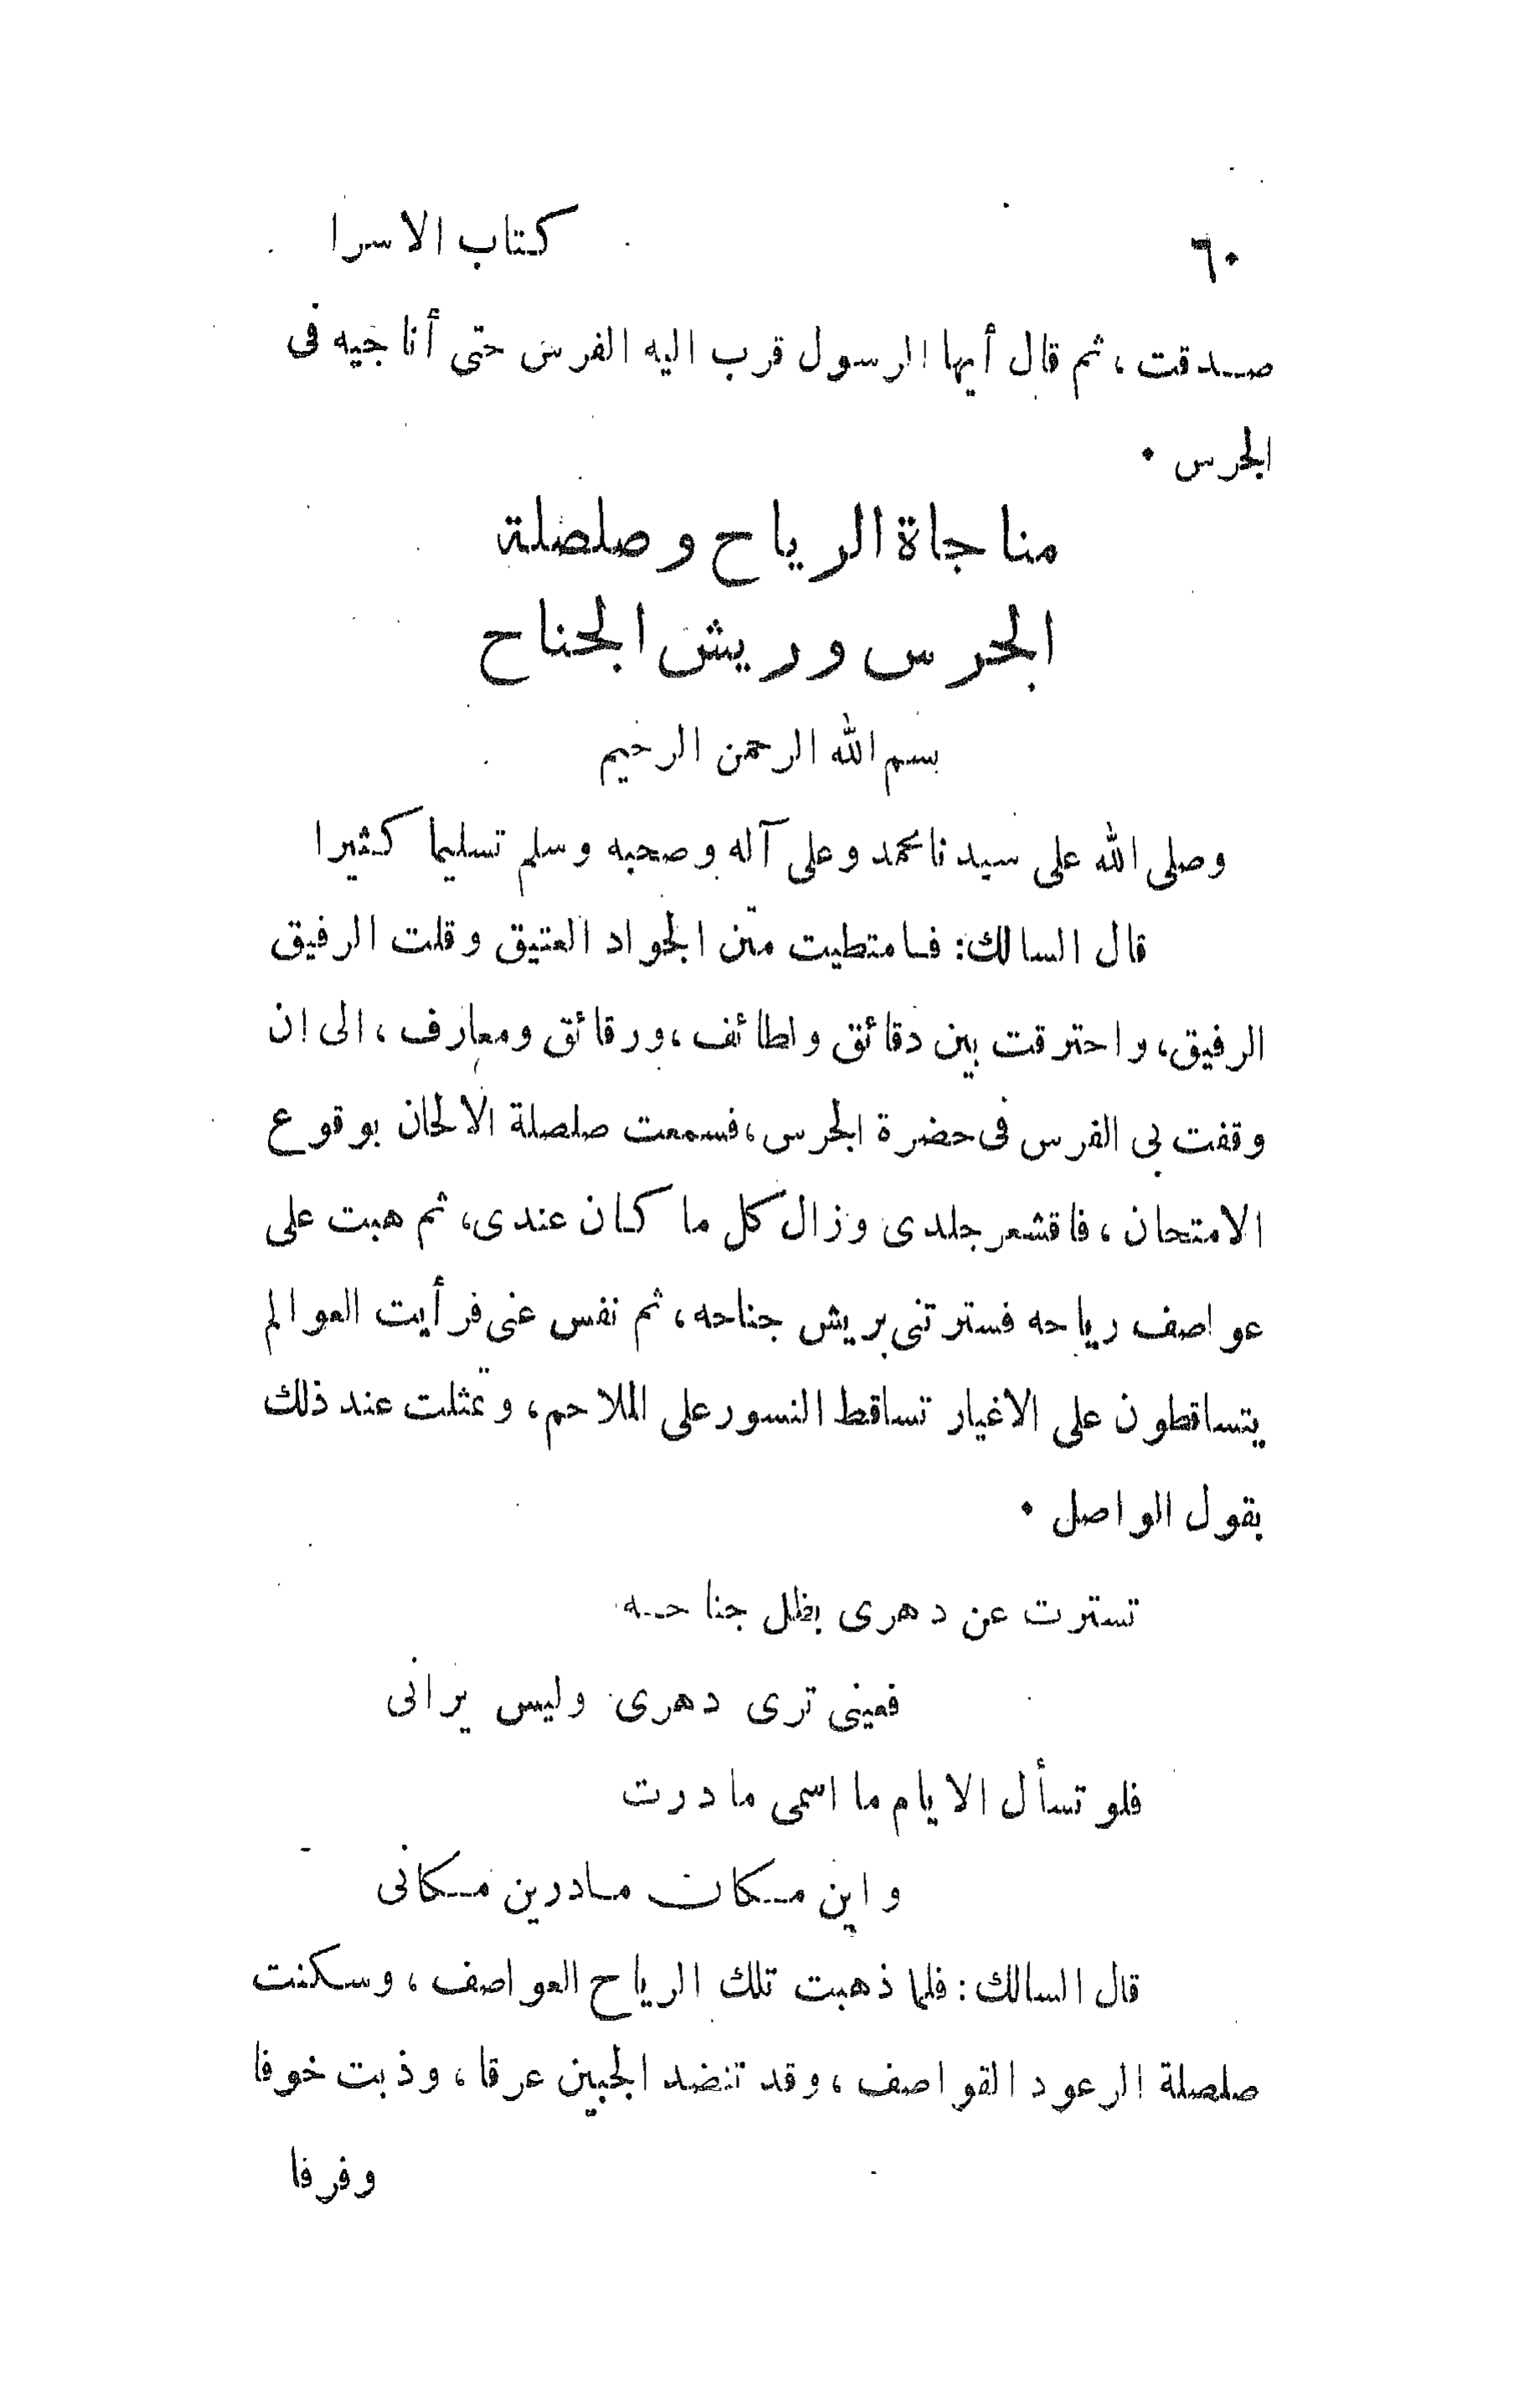 ٦٠ كتاب الاسرا
صدقت ، ثم قال أيها الرسول قرب اليه الفرس حتى أناجيه فى
الجرس .
مناجاة الرياح وصلصلة
الجرس وريش الجناح
بسم الله الرحمن الرحيم
وصلى الله على سيدنا محمد وعلى آله وصحبه وسلم تسليما كثيرا
قال السالك : فامتطيت متن الجواد العتيق وقلت الرفيق
الرفيق، واحترقت بين دقائق ولطائف ، ورقائق ومعارف ، الى ان
وقفت بى الفرس فى حضرة الجرس ، فسمعت صلصلة الالحان بوقوع
الامتحان ، فاقشعر جلدى وزال كل ما كان عندى، ثم هبت على
عواصف رياحه فسترتنى بريش جناحه ، ثم نفس عنى فرأيت العوالم
يتساقطون على الاغيار تساقط النسور على الملاحم ، وتمثلت عند ذلك
بقول الواصل .
تسترت عن دهرى بظل جناحه
فعينى ترى دهرى وليس يرانى
فلو تسأل الايام ما اسمى ما درت
واين مكان مادرين مكانى
قال السالك : فلما ذهبت تلك الرياح العواصف ، وسكنت
صلصلة الرعود القواصف ، وقد تنضد الجبين عرقا ، وذبت خوفا
وفرقا